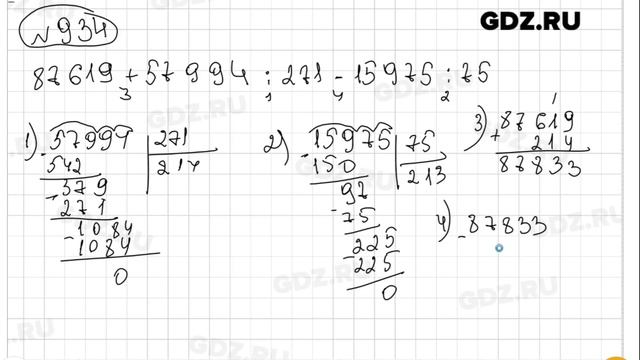 GDZ.RU
№934
87619 + 57994 : 271 - 15975 : 75
3 1 4 2
1) 57994 | 271
- 542 | 214
379
- 271
1084
- 1084
0
2) 15975 | 75
- 150 | 213
97
- 75
225
- 225
0
3) 87619
+ 214
87833
4) - 87833
GDZ.RU
GDZ.RU
GDZ.RU